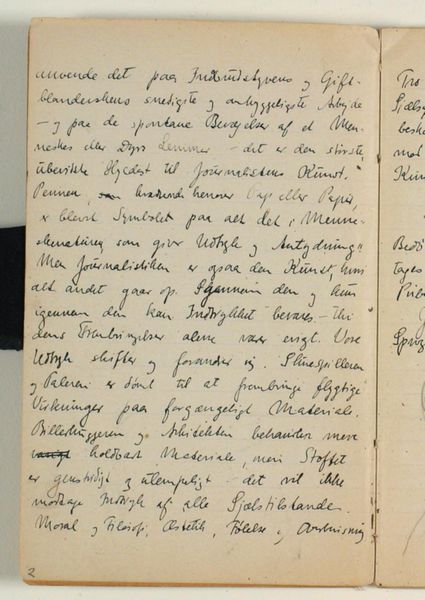 anvende det paa Indbrudstyvens og Gift-
blanderskens snedigste og omhyggeligste Arbejde
– og paa de spontane Bevægelser af et Men-
neskes eller Dyrs Lemmer – det er den største,
ubevidste Hyldest til Journalistens Kunst.
Pennen, henover eller Papir,
er blevet Symbolet paa alt det i Menne-
skenaturen som giver Udtryk og Antydning.
Men Journalistiken er ogsaa den Kunst, hvori
alt andet gaar op. Igennem den og kun
igennem den kan Indtrykket bevares – thi
dens Frembringelser alene være evigt. Vore
Udtryk skifter og forandrer sig. Skuespilleren
og Maleren er dømt til at frembringe flygtige
Virkninger paa forgængeligt Materiale.
Billedhuggeren og Arkitekten behandler mere
holdbart Materiale, men Stoffet
er genstridigt og ulempeligt – det vil ikke
modtage Indtryk af alle Sjælstilstande.
Moral og Filosofi, Æstetik, Følelse og Overbevisning
2
Tro
Sjæls
besk
mod
Kun
Bedø
tages
Pub
Sprog